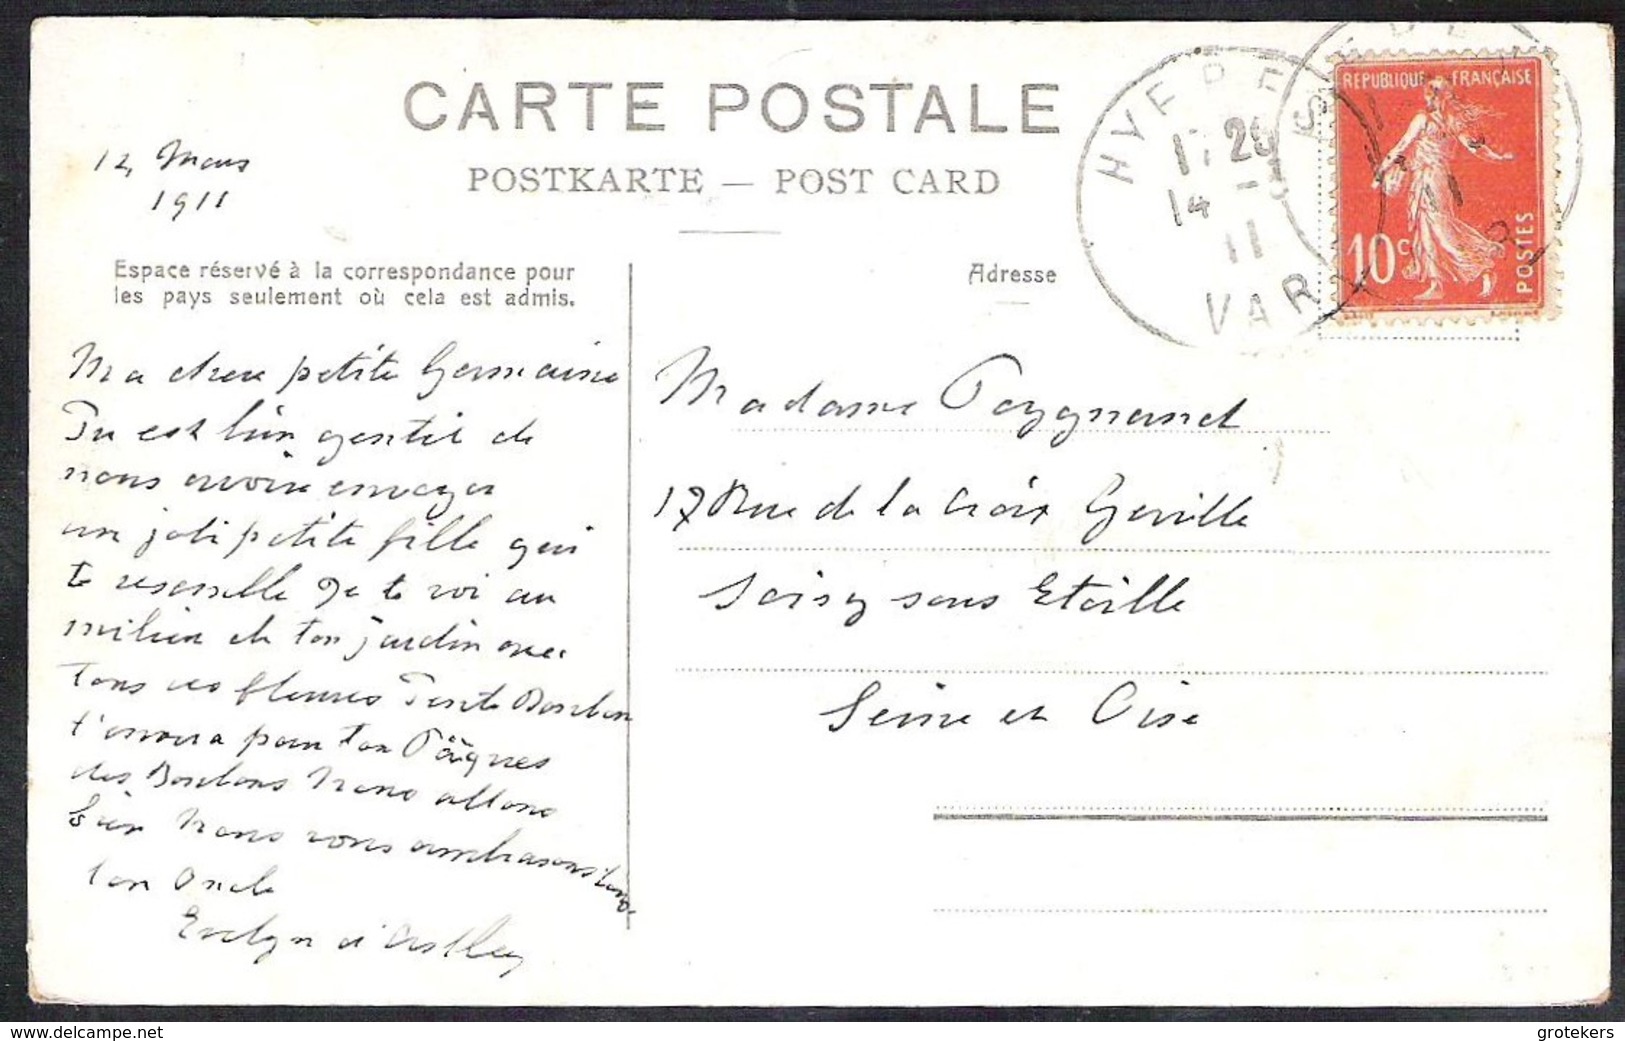 CARTE POSTALE
POSTKARTE — POST CARD
12, Mars
1911
Espace réservé à la correspondance pour
les pays seulement où cela est admis.
Adresse
HYERES
17 28
14 - 3
11
VAR
REPUBLIQUE FRANÇAISE
10c
POSTES
Ma chere petite Germaine
Tu est bien gentil de
nous avoire envoyer
un joli petite fille qui
te resemble Je te voi au
milieu de ton jardin avec
tous ces fleures Tente Bonbon
t'envera pour ton Pâques
des Bonbons Nous allons
bien Nous vous ambrasons tous
ton Oncle
Evelyn d'Astley
Madame Poygnand
17 Rue de la Croix Gerville
Soisy sous Etoille
Seine et Oise
www.delcampe.net
grotekers